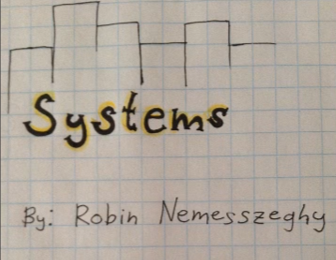 Systems
By: Robin Nemesszeghy